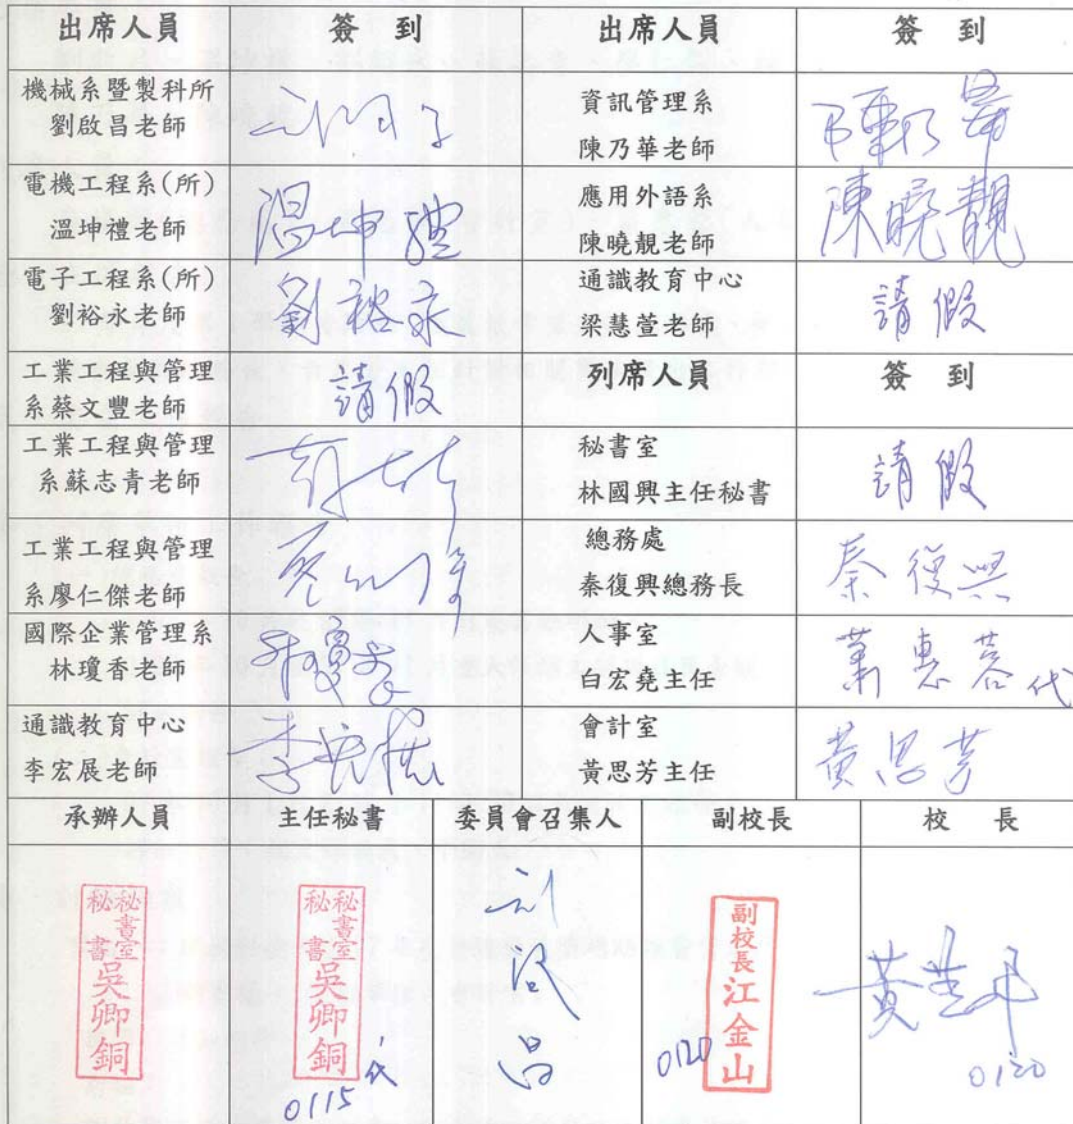 出席人員 簽 到 出席人員 簽 到
機械系暨製科所
劉啟昌老師
資訊管理系
陳乃華老師
陳乃華
電機工程系(所)
溫坤禮老師
溫坤禮
應用外語系
陳曉靚老師
陳曉靚
電子工程系(所)
劉裕永老師
劉裕永
通識教育中心
梁慧萱老師
請假
工業工程與管理
系蔡文豐老師
請假
列席人員 簽 到
工業工程與管理
系蘇志青老師
秘書室
林國興主任秘書
請假
工業工程與管理
系廖仁傑老師
總務處
秦復興總務長
秦復興
國際企業管理系
林瓊香老師
人事室
白宏堯主任
蕭惠蓉 代
通識教育中心
李宏展老師
李宏展
會計室
黃思芳主任
黃思芳
承辦人員 主任秘書 委員會召集人 副校長 校 長
秘書室
秘書
吳卿銅
秘書室
秘書
吳卿銅
代
0115
副校長江金山
0120
0120